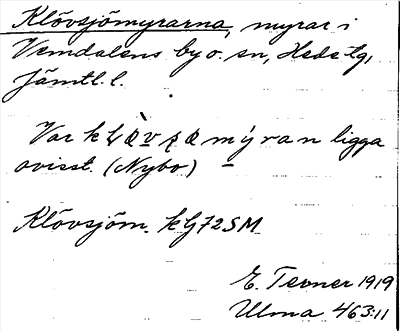 Klövsjömyrarna, myrar i
Vemdalens by o. sn, Hede tg,
Jämtl. l.
Var ligga
ovisst. (Nybo)
Klövsjöm. KG72SM
E. Tevner 1919
Ulma 463:11